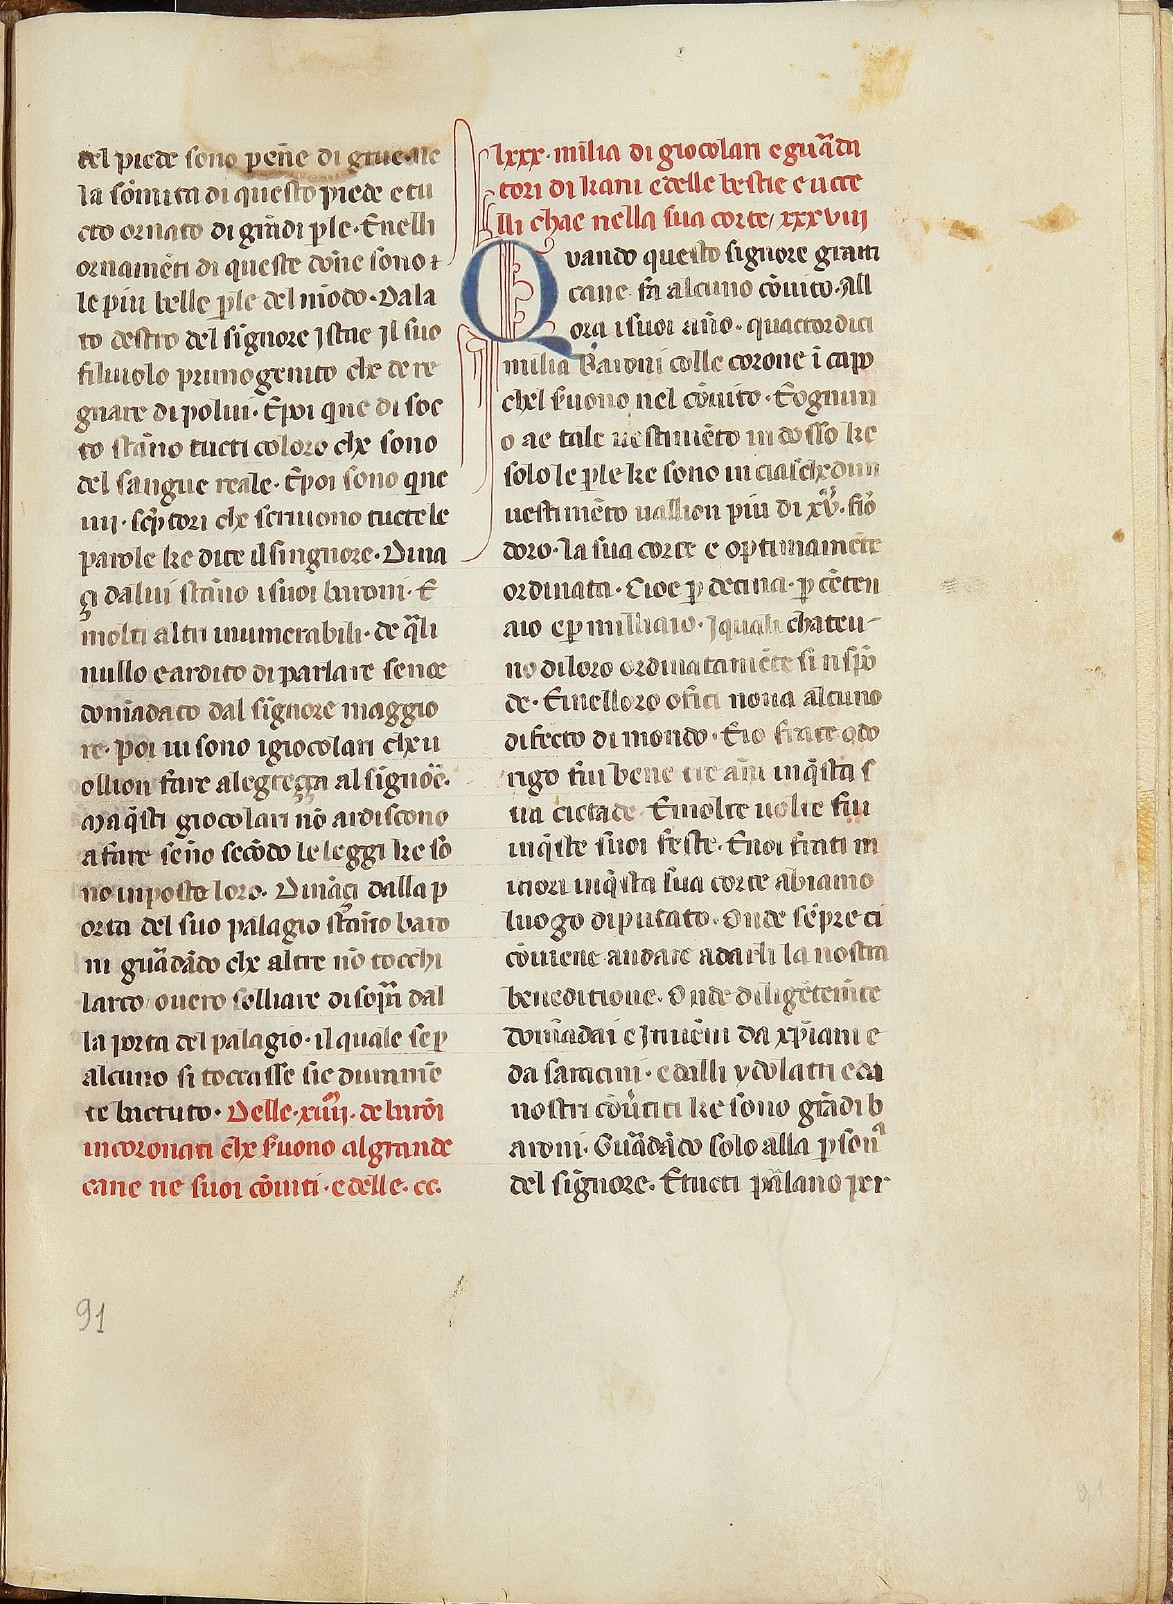 del piede sono peñe di grue ne
la sōmita di questo piede e tu
cto ornato di grādi ꝑle · E nelli
ornamēti di queste dōne sono ⁊
le piu belle ꝑle del mōdo · Dala
to destro del signore istae il suo
filiuolo primogenito che de re
gnare di polui · E poi que di soc
to stāno tucti coloro che sono
del sangue reale · E poi sono que
iiii · scptori che scriuono tucte le
parole ke dice il singnore · Dina
çi dalui stāno i suoi baroni · E
molti altri inumerabili · de q̄li
nullo e ardito di parlare sença
domādato dal signore maggio
re · poi ui sono i giocolari che u
ollion fare alegreçça al signoē ·
Ma q̄sti giocolari nō ardiscono
a fare señō secōdo le leggi ke so
no inposte loro · Dināçi dalla p
orta del suo palagio stāno baro
ni guādādo che altre nō tocchi
larco ouero solliare di sop̄a dal
la porta del palagio · il quale se p
alcuno si toccasse sie durāmē
te battuto · Delle · xiiii · de barōi
incoronati che fuono al grande
cane ne suoi cōuiti · e delle · cc.
lxxx · milia di giocolari e guāda
tori di kani e delle bestie e ucce
lli chae nella sua corte / xxxviii
Quando questo signore gran
cane fa alcuno cōuito · All
ora i suoi āno · quactordici
milia Baroni colle corone ī capo
chel fuono nel cōuito · E ognun
o ae tale uestimēto in dosso ke
solo le ꝑle ke sono in ciaschedun
uestimēto uallion piu di xv̄ · fio
doro · la sua corte e optimamēte
ordinata · Cioe ꝑ decina · ꝑ cēten
aio e ꝑ milliaio · I quali chateu-
no di loro ordinatamēte si rispō
de · E nelloro ofici nona alcuno
difecto di mondo · E io frate odo
rigo fui bene tre ani in q̄sta s
ua cictade · E molte uolte fui
in q̄ste suoi feste · E noi frati m
inori in q̄sta sua corte abiamo
luogo diputato · Onde sēpre ci
cōuiene andare a darli la nostra
beneditione · Onde diligētemēte
domādai e inuēni da xp̄iani e
da saracini · e dalli ydolatri e da
nostri cōuertiti ke sono grādi b
aroni · Guādādo solo alla ꝑsona
del signore · E tucti pālano per
91